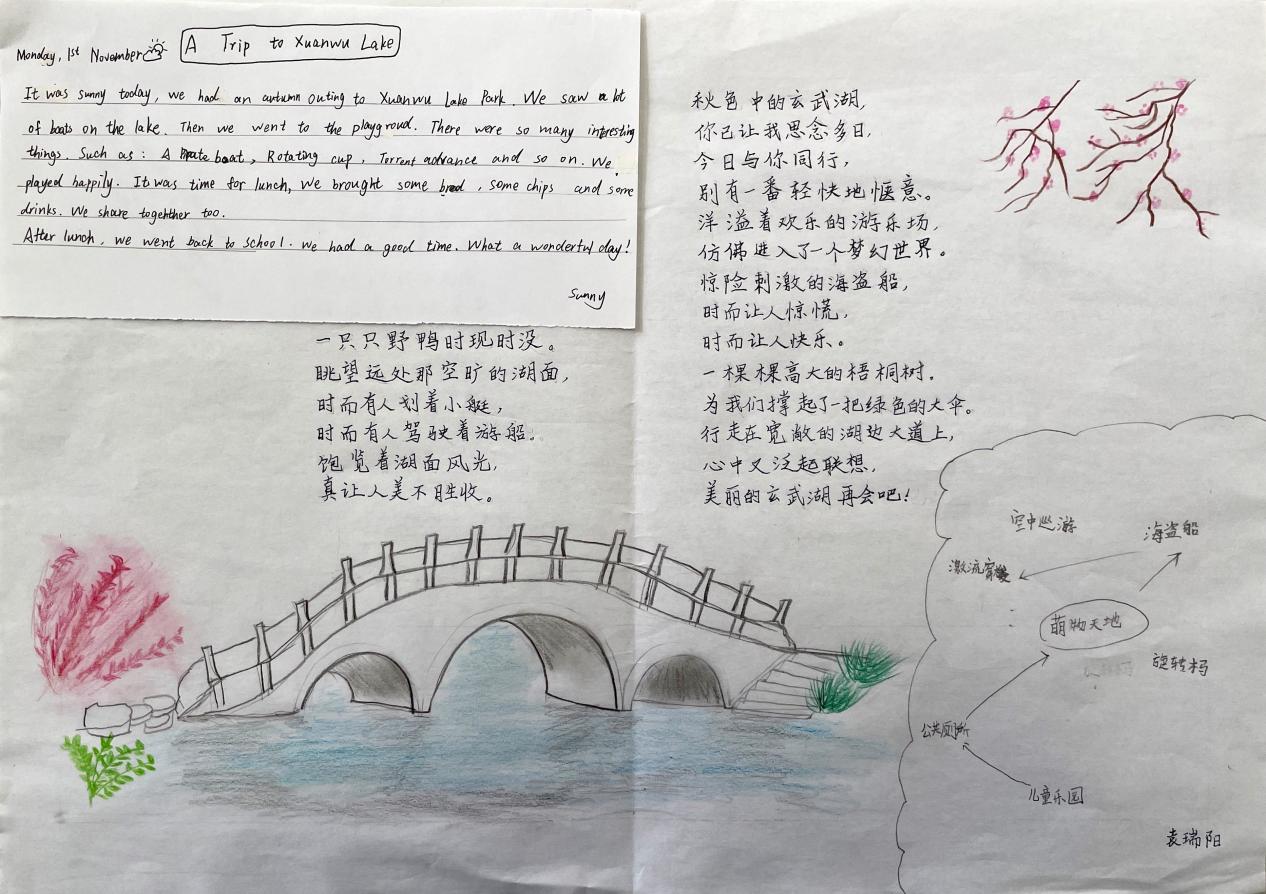 Monday, 1st November
A Trip to Xuanwu Lake
It was sunny today, we had an autumn outing to Xuanwu Lake Park. We saw a lot
of boats on the lake. Then we went to the playgroud. There were so many intresting
things. Such as: A Pirate boat, Rotating cup, Torrent advance and so on. We
played happily. It was time for lunch, we brought some bread, some chips and some
drinks. We share togethther too.
After lunch, we went back to school. We had a good time. What a wonderful day!
Sunny
一只只野鸭时现时没。
眺望远处那空旷的湖面,
时而有人划着小艇,
时而有人驾驶着游船。
饱览着湖面风光,
真让人美不胜收。
秋色中的玄武湖,
你已让我思念多日,
今日与你同行,
别有一番轻快地惬意。
洋溢着欢乐的游乐场,
仿佛进入了一个梦幻世界。
惊险刺激的海盗船,
时而让人惊慌,
时而让人快乐。
一棵棵高大的梧桐树,
为我们撑起了一把绿色的大伞。
行走在宽敞的湖边大道上,
心中又泛起联想,
美丽的玄武湖再会吧!
空中巡游
海盗船
激流穿
萌物天地
旋转吗
公共厕所
儿童乐园
袁瑞阳